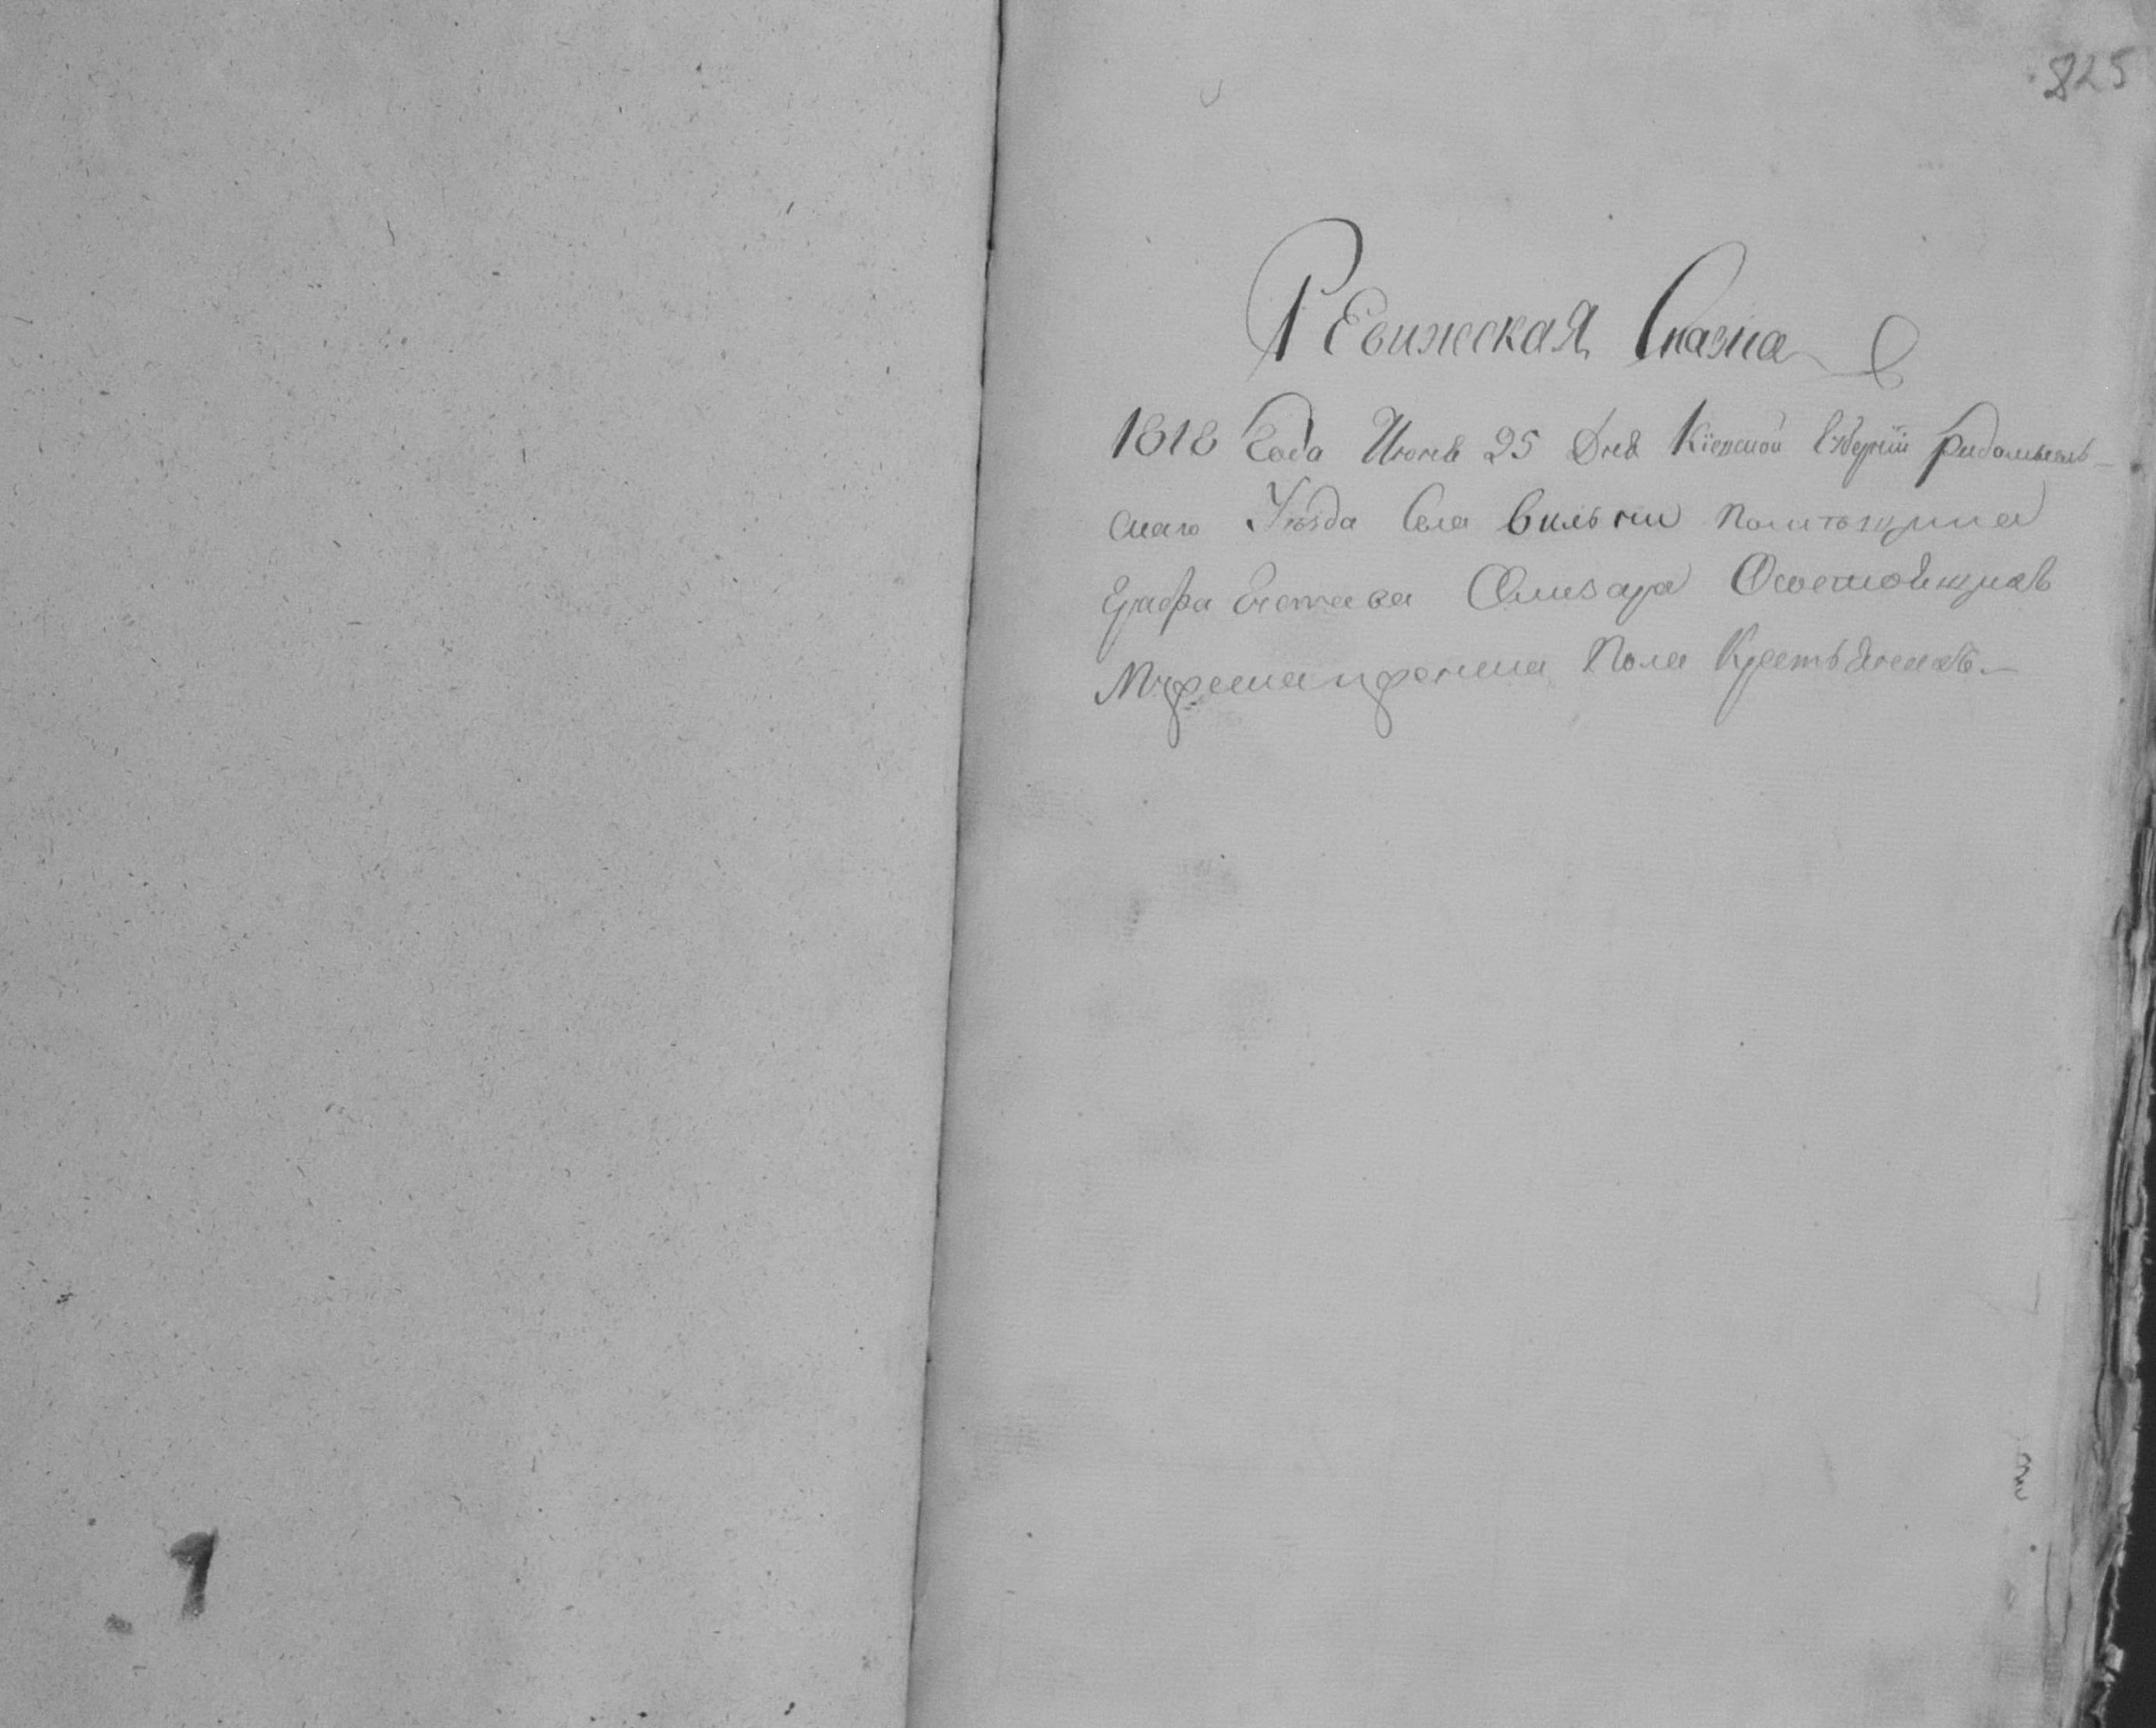 825
РЕвижская Сказка
1818 Года Июня 25 Дня Кіевской Губерніи Радомысль-
скаго Уѣзда Села Вильни Помѣщика
Графа Густава Олизара О Состоящихъ
Мужеска и женска Пола Крестьянахъ.
1